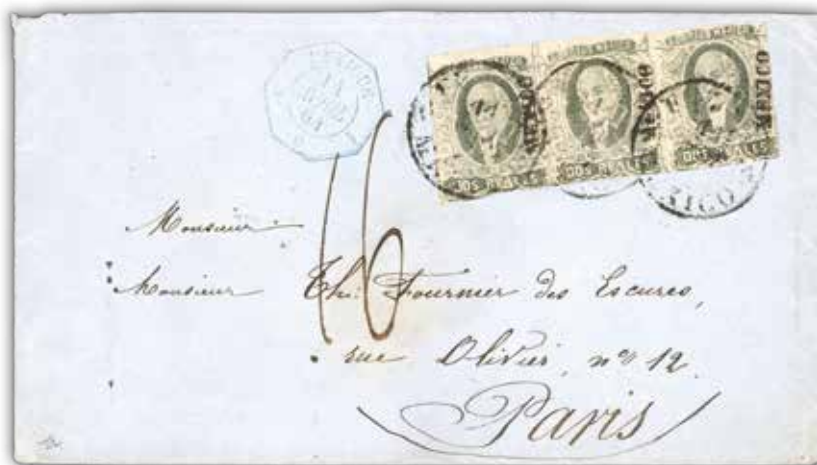 MEXICO
MEXICO
MEXICO
DOS REALES
DOS REALES
DOS REALES
XICO
16
Monsieur
Monsieur Th: Fournier des Escures,
rue Olivier, nº 12.
Paris